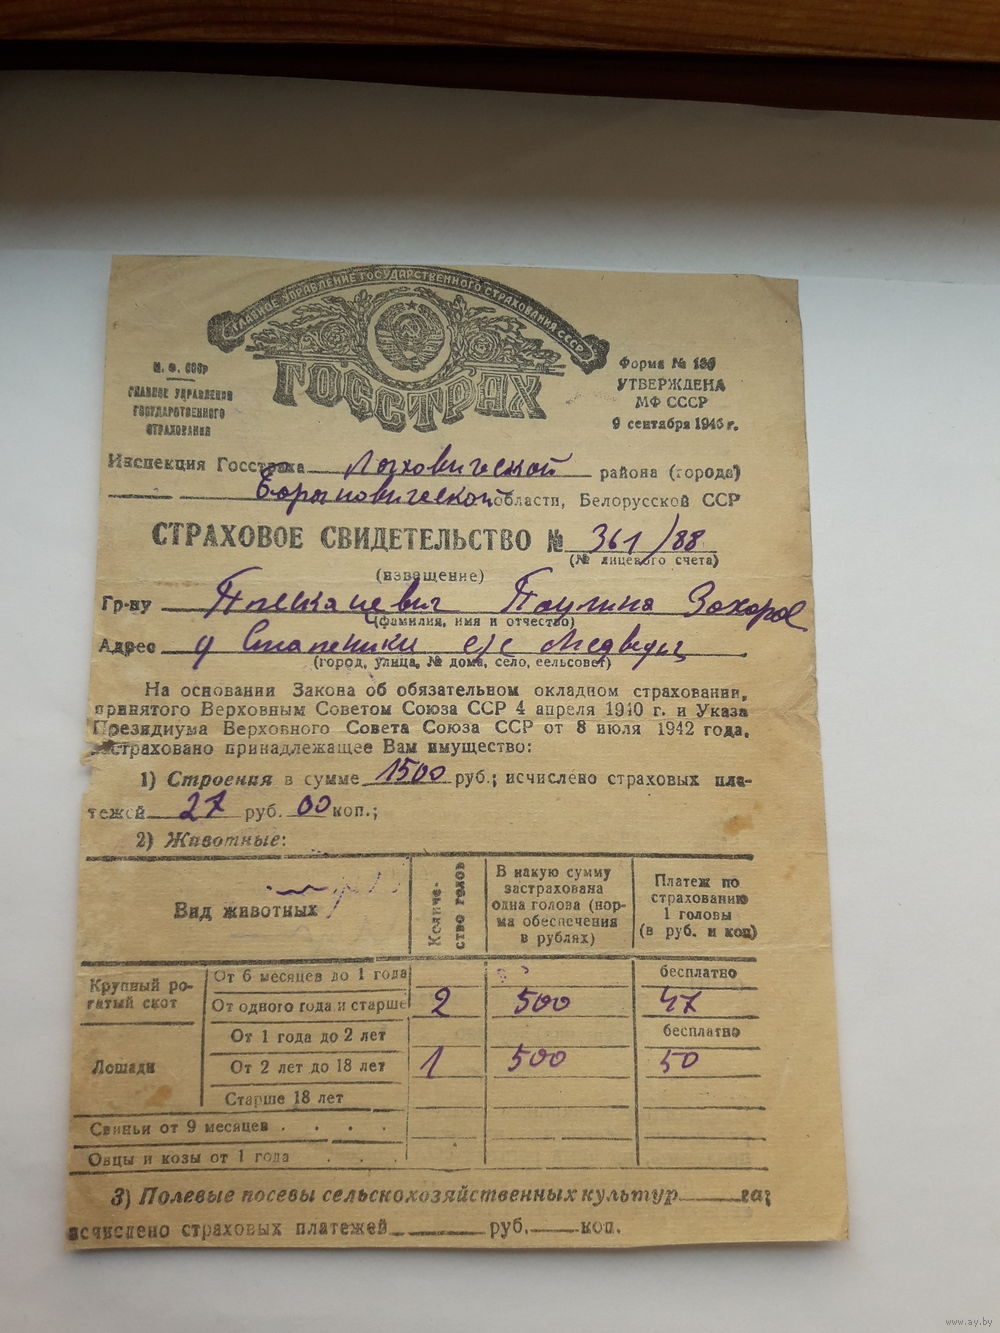 ГЛАВНОЕ УПРАВЛЕНИЕ ГОСУДАРСТВЕННОГО СТРАХОВАНИЯ СССР
ГОССТРАХ
М. Ф. СССР
ГЛАВНОЕ УПРАВЛЕНИЕ
ГОСУДАРСТВЕННОГО
СТРАХОВАНИЯ
Форма № 139
УТВЕРЖДЕНА
МФ СССР
9 сентября 1946 г.
Инспекция Госстраха Ляховичской района (города)
Барановичской области, Белорусской ССР
СТРАХОВОЕ СВИДЕТЕЛЬСТВО № 361/88
(№ лицевого счета)
(извещение)
Гр-ну Паулина Захаров
(фамилия, имя и отчество)
Адрес д с/с Медведи
(город, улица, № дома, село, сельсовет)
На основании Закона об обязательном окладном страховании,
принятого Верховным Советом Союза ССР 4 апреля 1940 г. и Указа
Президиума Верховного Совета Союза ССР от 8 июля 1942 года,
застраховано принадлежащее Вам имущество:
1) Строения в сумме 1500 руб.; исчислено страховых пла-
тежей 27 руб. 00 коп.;
2) Животные:
Вид животных
Количе-
ство голов
В какую сумму
застрахована
одна голова (нор-
ма обеспечения
в рублях)
Платеж по
страхованию
1 головы
(в руб. и коп)
Крупный ро-
гатый скот
От 6 месяцев до 1 года бесплатно
От одного года и старше 2 500 47
Лошади
От 1 года до 2 лет бесплатно
От 2 лет до 18 лет 1 500 50
Старше 18 лет
Свиньи от 9 месяцев . . . .
Овцы и козы от 1 года . . .
3) Полевые посевы сельскохозяйственных культур га;
исчислено страховых платежей руб. коп.
www.ay.by